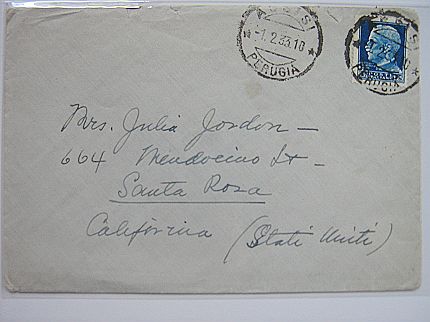 -1.2.33.10
PERUGIA
PERUGIA
Mrs. Julia Jordon —
664 Mendocino St —
Santa Rosa
California (Stati Uniti)